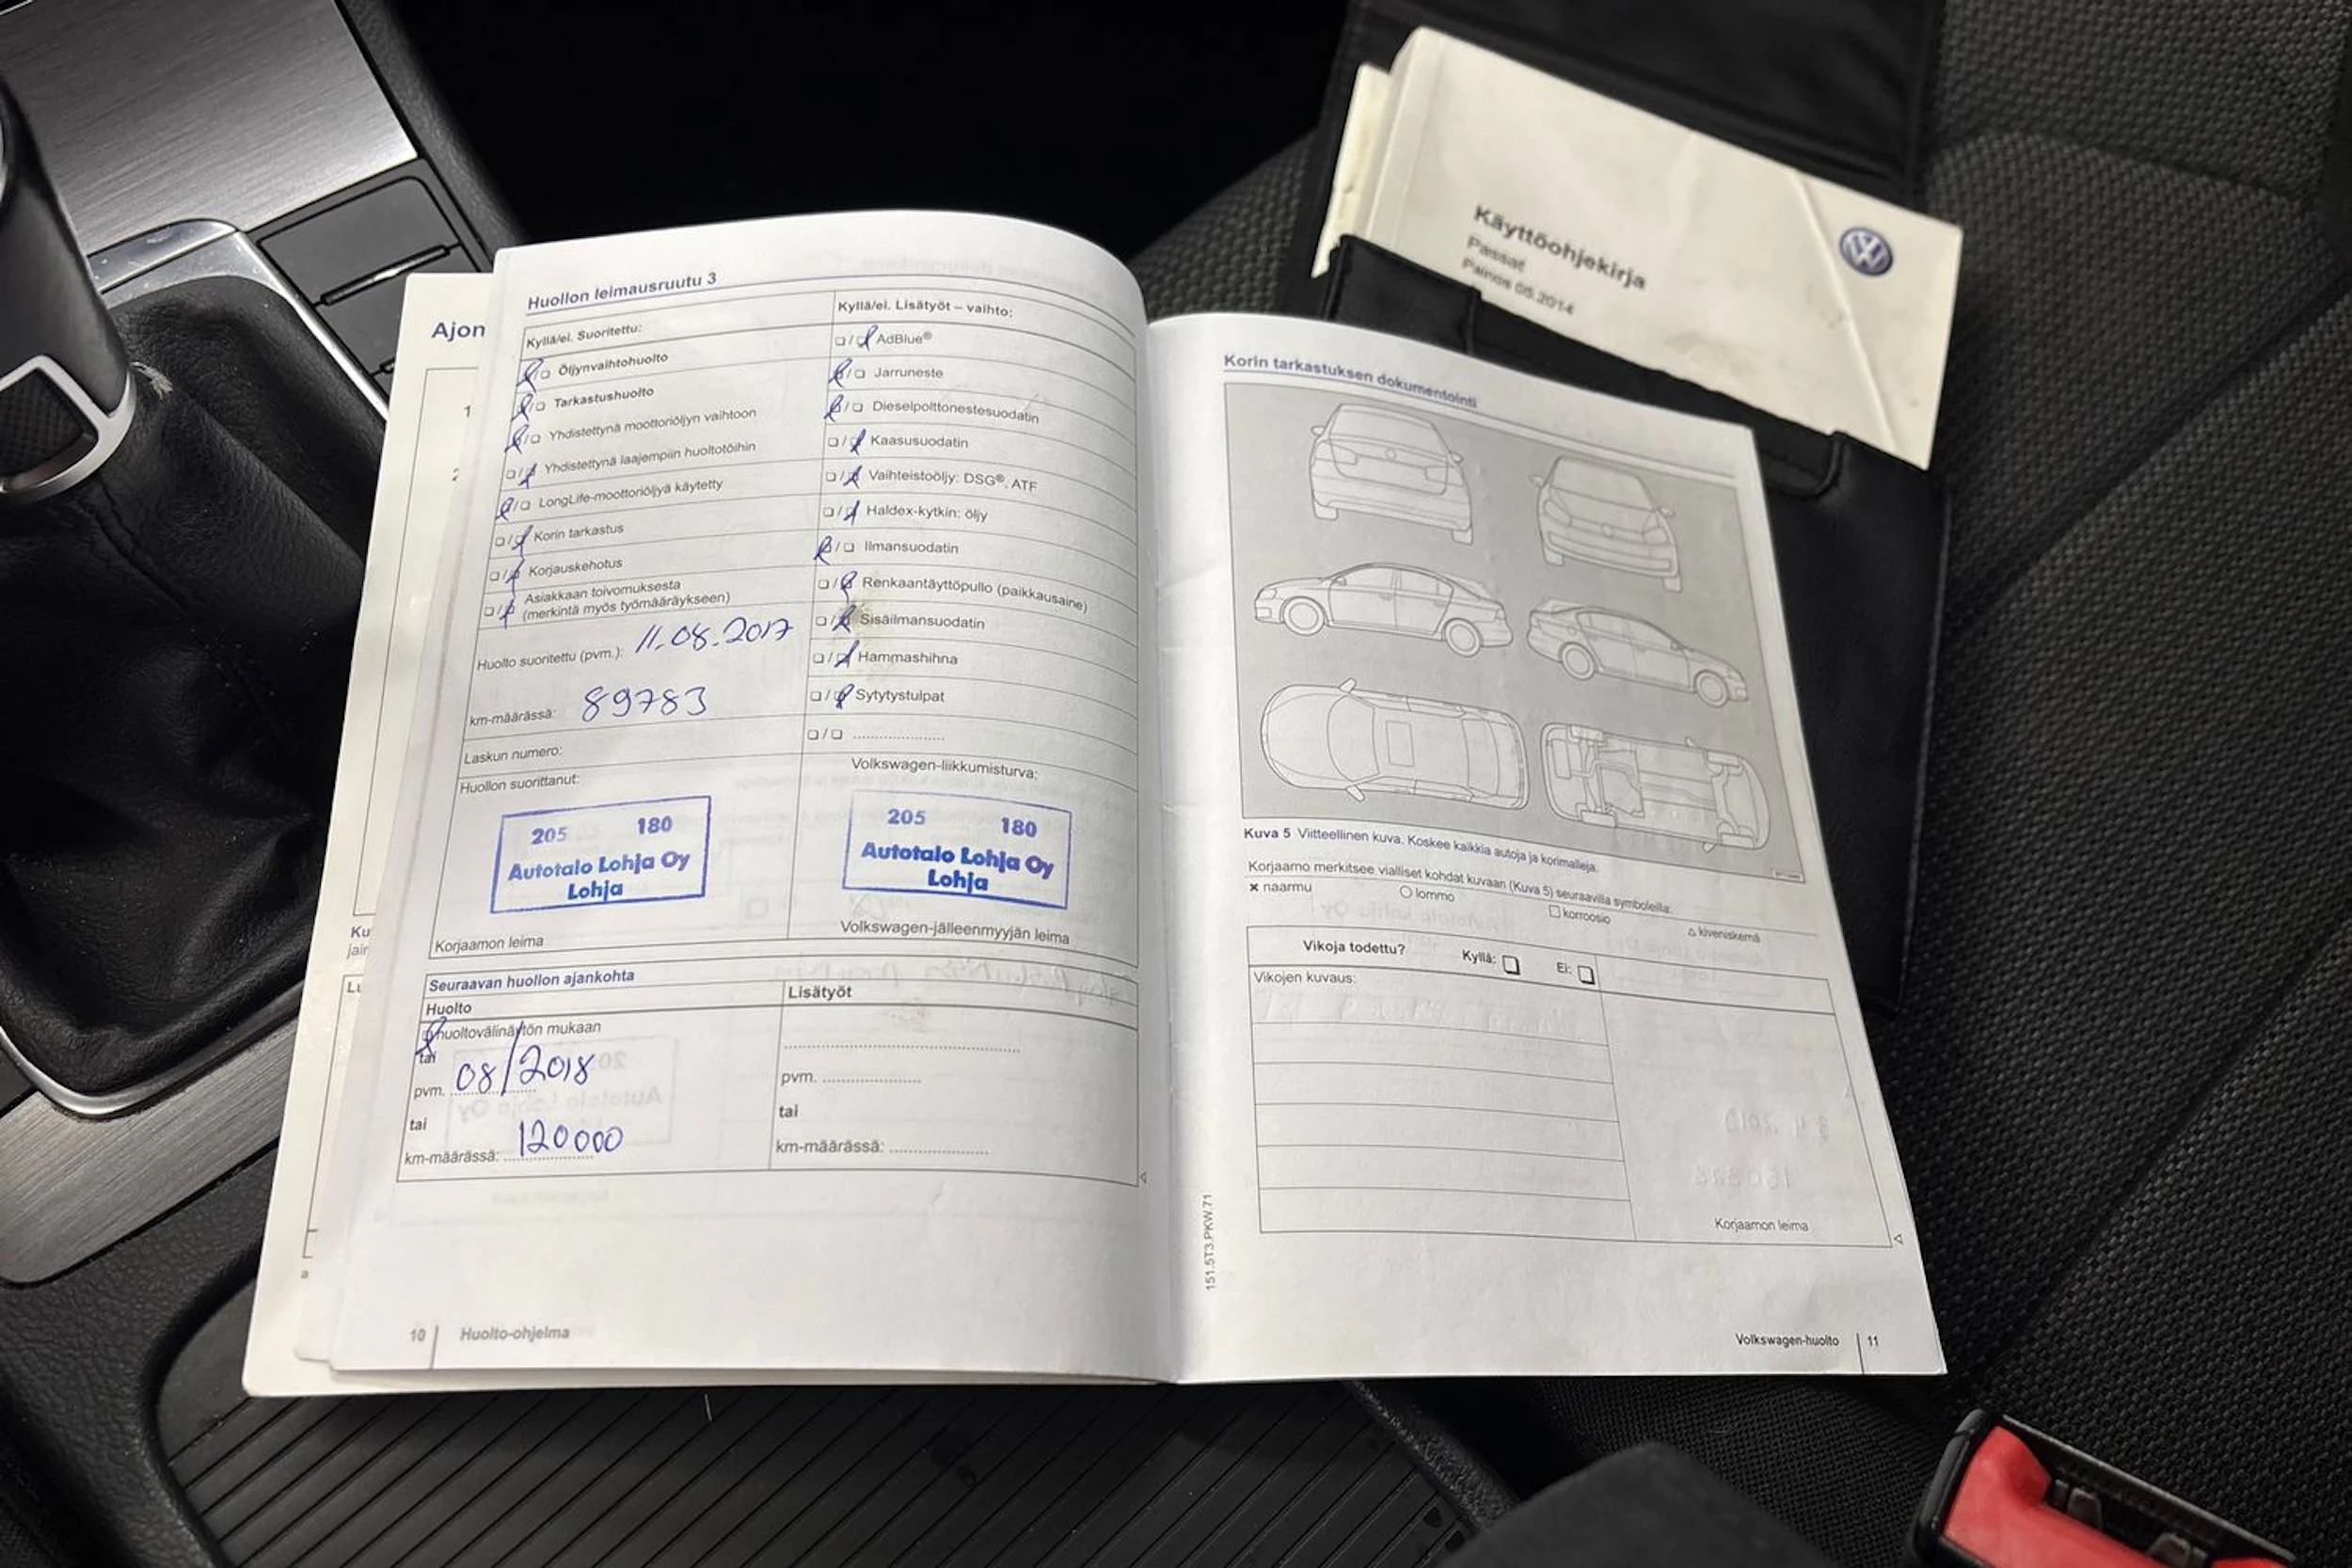 Ajon
1
2
Ku
jain
Lu
a
Huollon leimausruutu 3
Kyllä/ei. Suoritettu:
Öljynvaihtohuolto
Tarkastushuolto
Yhdistettynä moottoriöljyn vaihtoon
Yhdistettynä laajempiin huoltotöihin
LongLife-moottoriöljyä käytetty
Korin tarkastus
Korjauskehotus
Asiakkaan toivomuksesta
(merkintä myös työmääräykseen)
Huolto suoritettu (pvm.): 11.08.2017
km-määrässä: 89783
Laskun numero:
Huollon suorittanut:
205 180
Autotalo Lohja Oy
Lohja
Korjaamon leima
Kyllä/ei. Lisätyöt – vaihto:
AdBlue®
Jarruneste
Dieselpolttonestesuodatin
Kaasusuodatin
Vaihteistoöljy: DSG®, ATF
Haldex-kytkin: öljy
Ilmansuodatin
Renkaantäyttöpullo (paikkausaine)
Sisäilmansuodatin
Hammashihna
Sytytystulpat
Volkswagen-liikkumisturva:
205 180
Autotalo Lohja Oy
Lohja
Volkswagen-jälleenmyyjän leima
Seuraavan huollon ajankohta
Huolto
huoltovälinäytön mukaan
tai
pvm. 08/2018
tai
km-määrässä: 120000
Lisätyöt
pvm.
tai
km-määrässä:
10 Huolto-ohjelma
Korin tarkastuksen dokumentointi
Kuva 5 Viitteellinen kuva. Koskee kaikkia autoja ja korimalleja.
Korjaamo merkitsee vialliset kohdat kuvaan (Kuva 5) seuraavilla symboleilla:
× naarmu ○ lommo □ korroosio △ kiveniskemä
Vikoja todettu? Kyllä: Ei:
Vikojen kuvaus:
Korjaamon leima
151.5T3.PKW.71
Volkswagen-huolto 11
Käyttöohjekirja
Passat
Painos 05.2014